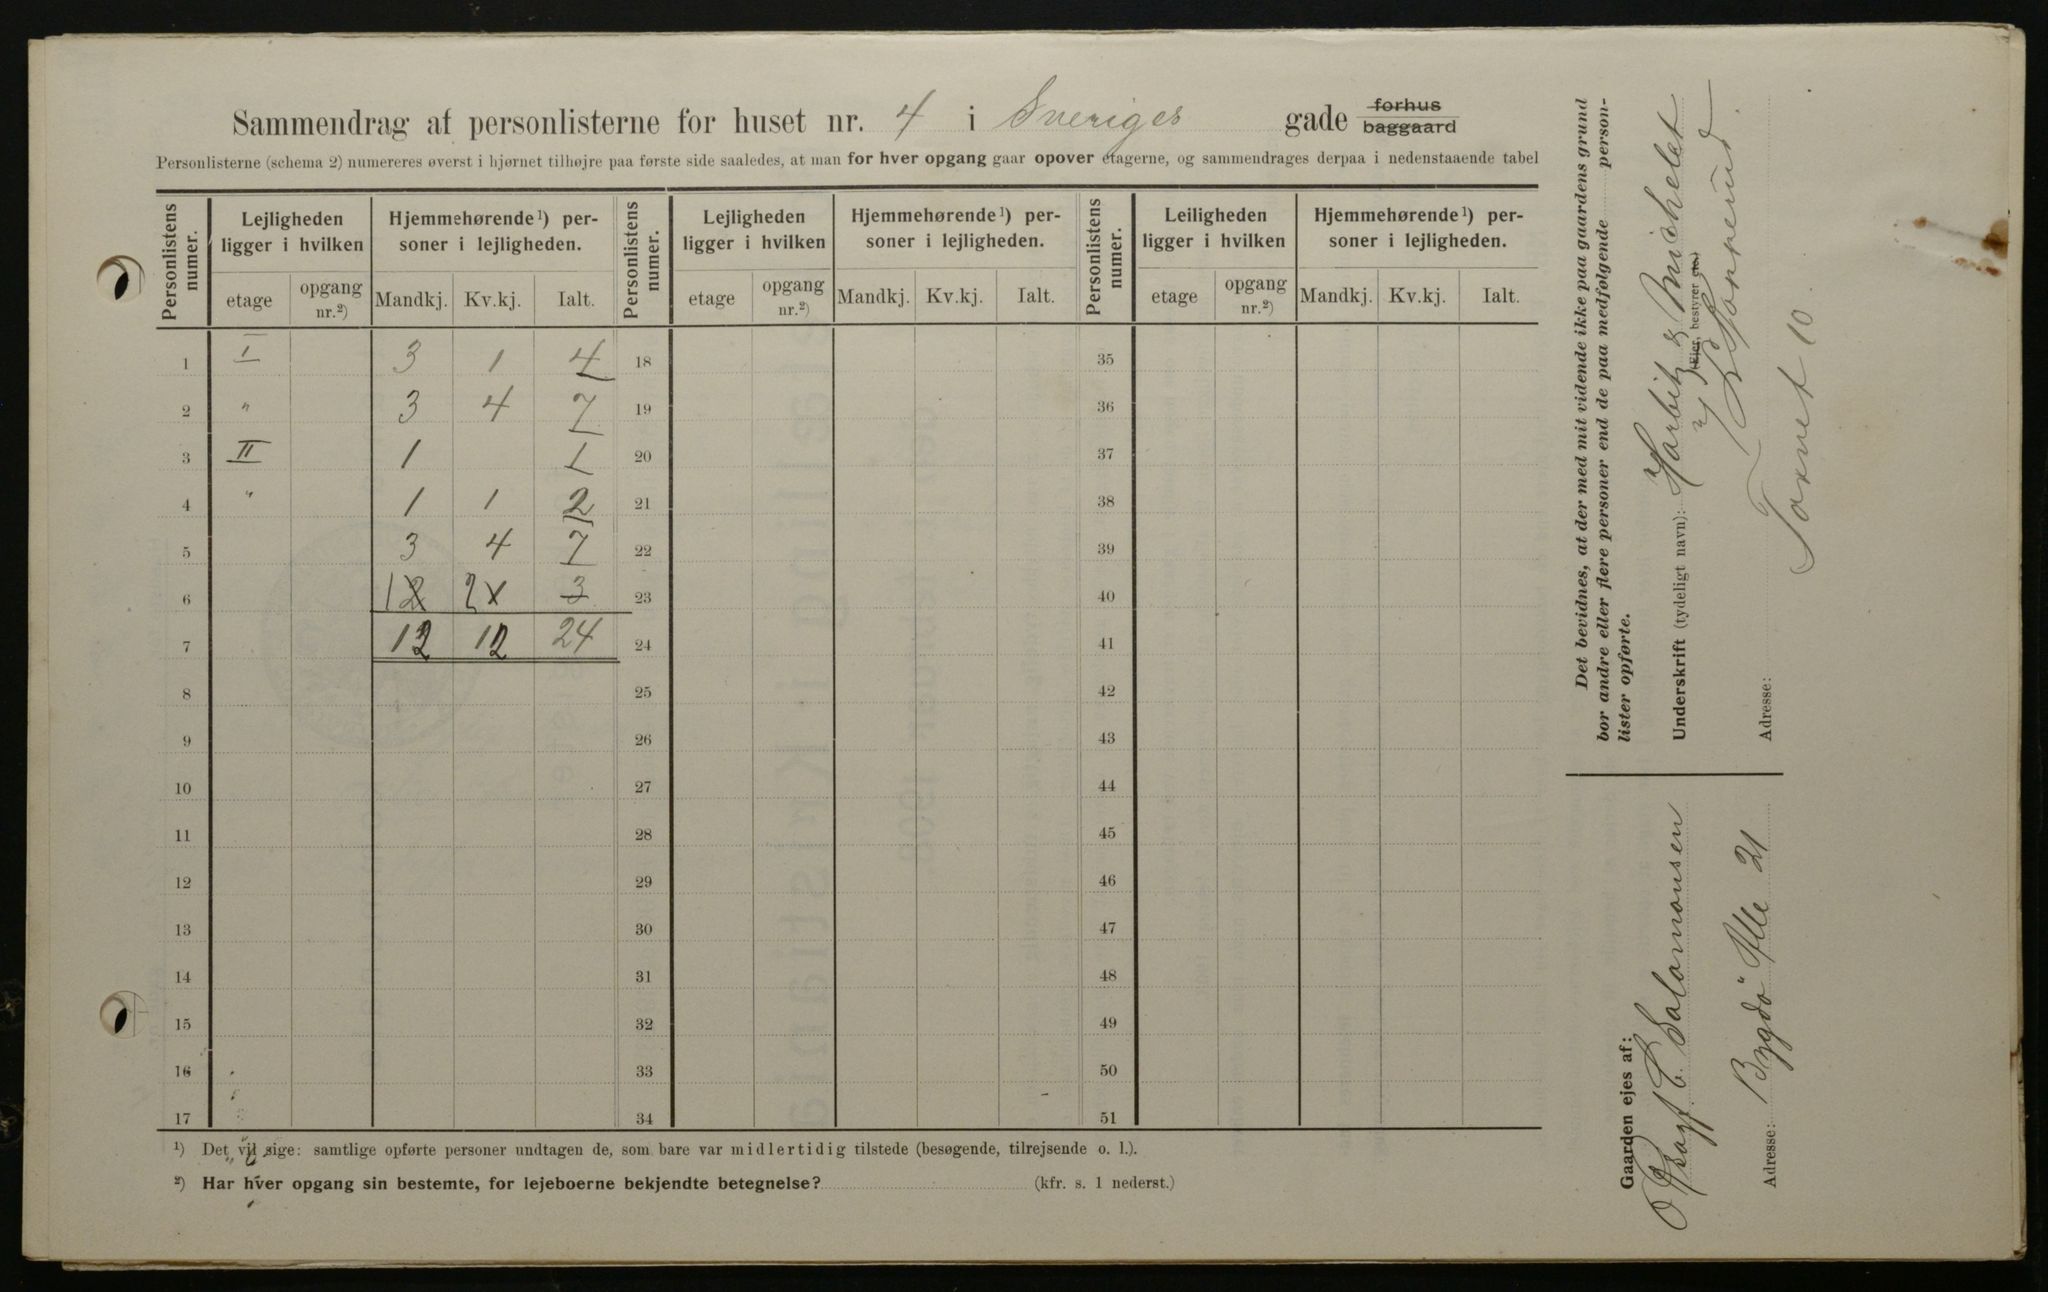 Sammendrag af personlisterne for huset nr. 4 i Sveriges gade forhus baggaard
Personlisterne (schema 2) numereres øverst i hjørnet tilhøjre paa første side saaledes, at man for hver opgang gaar opover etagerne, og sammendrages derpaa i nedenstaaende tabel
Personlistens numer. Lejligheden ligger i hvilken Hjemmehørende ¹) personer i lejligheden. Personlistens numer. Lejligheden ligger i hvilken Hjemmehørende ¹) personer i lejligheden. Personlistens numer. Leiligheden ligger i hvilken Hjemmehørende ¹) personer i lejligheden.
etage opgang nr.²) Mandkj. Kv.kj. Ialt. etage opgang nr.²) Mandkj. Kv.kj. Ialt. etage opgang nr.²) Mandkj. Kv.kj. Ialt.
1 I 3 1 4 18 35
2 " 3 4 7 19 36
3 II 1 1 20 37
4 " 1 1 2 21 38
5 3 4 7 22 39
6 1 2 2 1 3 23 40
7 12 12 24 24 41
8 25 42
9 26 43
10 27 44
11 28 45
12 29 46
13 30 47
14 31 48
15 32 49
16 33 50
17 34 51
¹) Det vil sige: samtlige opførte personer undtagen de, som bare var midlertidig tilstede (besøgende, tilrejsende o. l.).
²) Har hver opgang sin bestemte, for lejeboerne bekjendte betegnelse? (kfr. s. 1 nederst.)
Det bevidnes, at der med mit vidende ikke paa gaardens grund
bor andre eller flere personer end de paa medfølgende person-
lister opførte.
Underskrift (tydeligt navn): Harbitz & Michelet
(Ejer, bestyrer etc.)
Adresse: Torvet 10
Gaarden ejes af:
C. Salomonsen
Adresse: Bygdö Alle 21